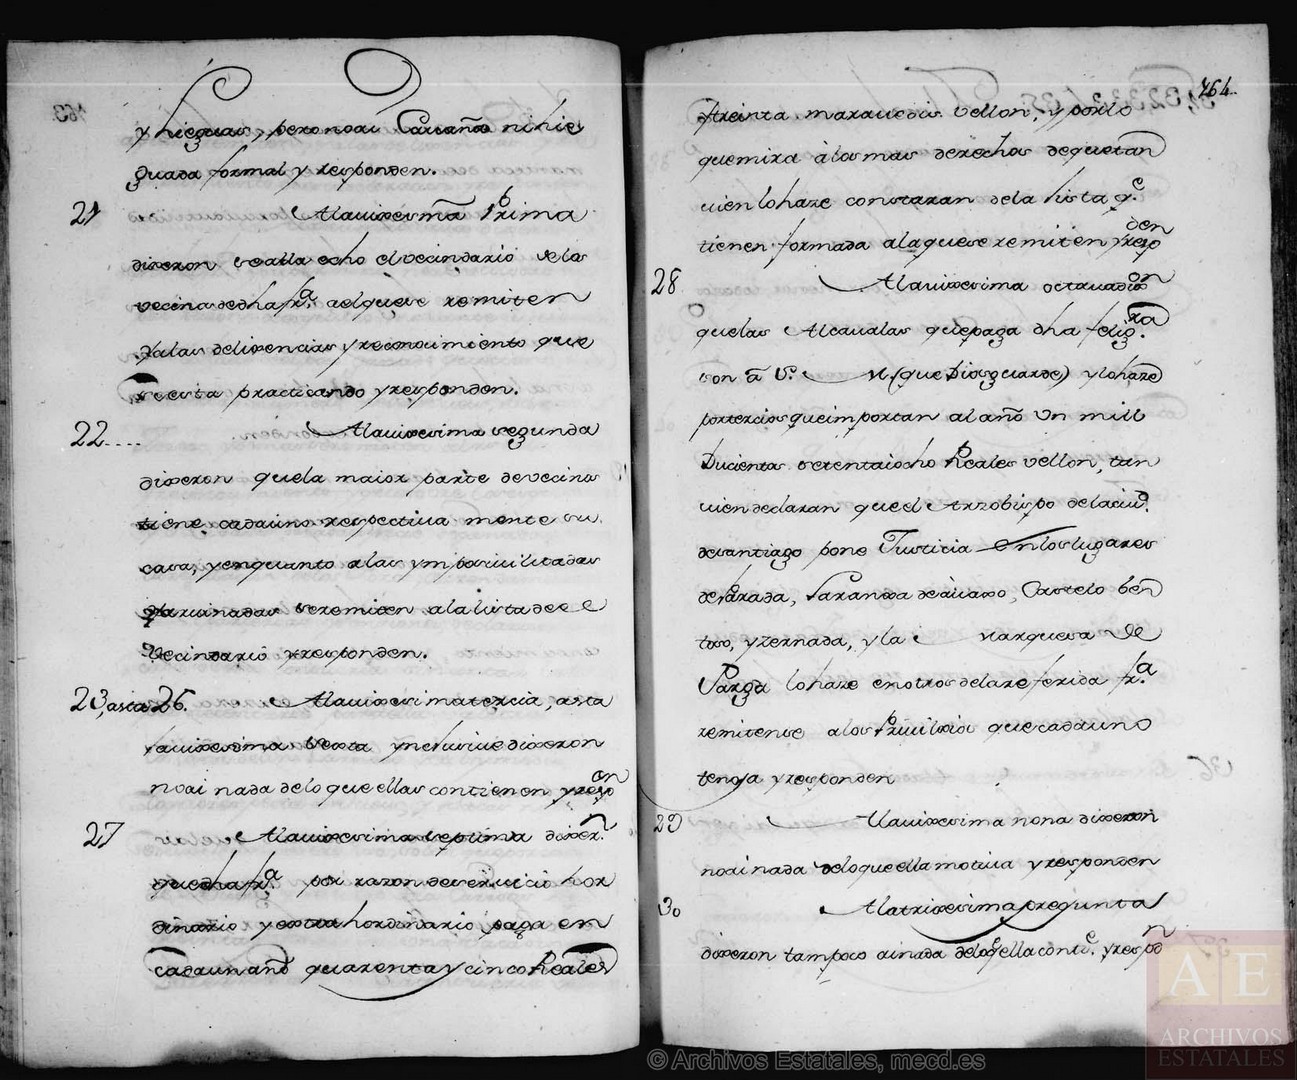 y hieguas, pero no ai Cavaña ni hie
guada formal y responden.
21 Alavixesma Prima
dixeron se alla echo el vecindario de los
vecinos de dha fra. a el que se remiten
y alas delixencias y reconocimiento que
se esta practicando y responden.
22.... Alavixesima segunda
dixeron que la maior parte de vecinos
tiene cada uno respectiva mente su
casa, y en quanto alas ymposivilitadas
y aruinadas se remiten ala lista de ese
Vecindario y responden.
23, asta 26. Alavixesima tercia, asta
lavixesima sexta ynclusive dixeron
no ai nada de lo que ellas contienen y respon
27 Alavixesima septima dixern.
que dha fra. por razon de servicio hor
dinario y extra hordinario paga en
cada un año quarenta y cinco Reales
464
treinta maravedis vellon, y por lo
que mira à los mas derechos de que tan
vien lo haze constaran de la lista qe.
tienen formada ala que se remiten y respo
den
28 Alavixesima octava dixon
que las Alcavalas que paga dha feligra.
son a S. M. (que Dios guarde) y lo haze
por tercios que importan al año Un mill
Ducientos setenta i ocho Reales vellon, tan
vien declaran que el Arzobispo de la ciud.
de santiago pone Justicia en los lugares
de Parada, de Castelo ben
toso, y zernada, y la Marquesa de
Parga lo haze en otros de la referida fra.
remitense a los Privilexios que cada uno
tenga y responden
29 Alavixesima nona dixeron
no ai nada de lo que ella motiva y responden
30 Ala trixesima pregunta
dixeron tampoco ai nada de lo qe ella conte. y respodn
A E
ARCHIVOS
ESTATALES
© Archivos Estatales, mecd.es